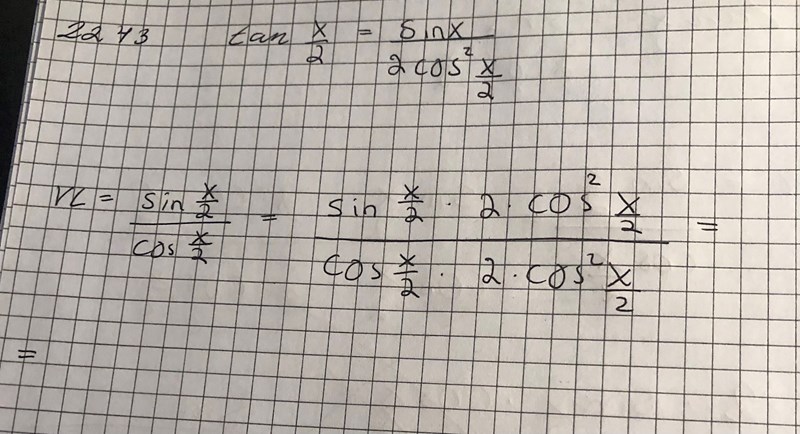 2243 tan x/2 = sinx / 2cos² x/2
VL = sin x/2 / cos x/2 = sin x/2 · 2 · cos² x/2 / cos x/2 · 2 · cos² x/2 =
=